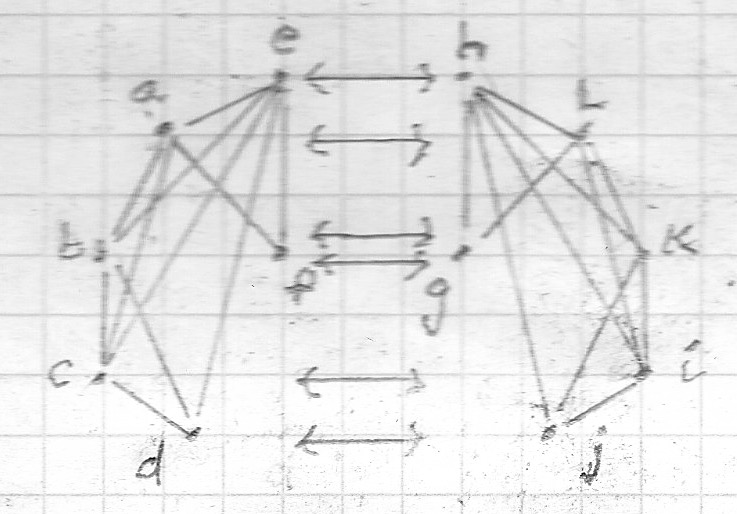 e h
a L
b K
f g
c i
d j